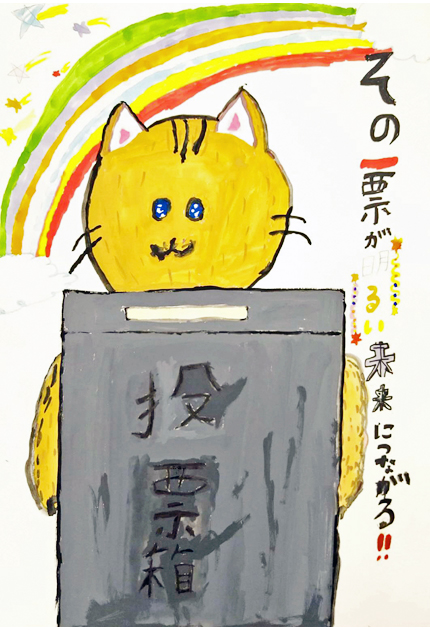 その一票が明るい未来につながる!!
投票箱